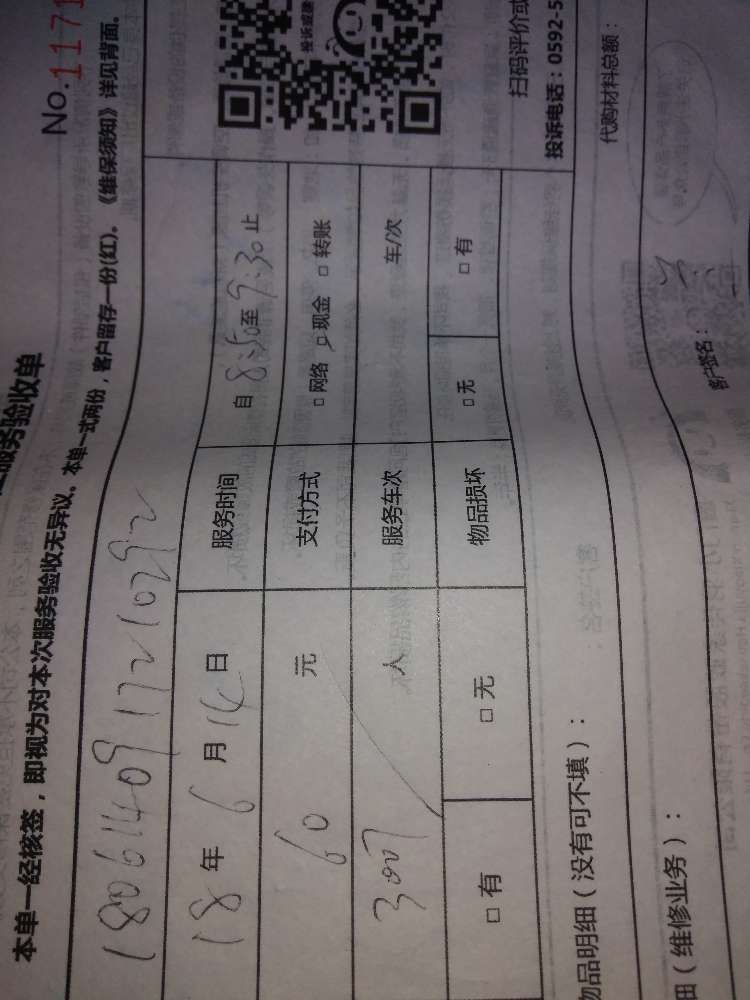 服务验收单
No.1171
本单一经核签，即视为对本次服务验收无异议。本单一式两份，客户留存一份(红)。《维保须知》详见背面。
1806140917210292
18年6月14日 服务时间 自8:50至9:30止
60元 支付方式 □网络 □现金 □转账
人 服务车次 车/次
□有 □无 物品损坏 □无 □有
物品明细（没有可不填）：
扫码评价或
投诉电话：0592-5
细（维修业务）：
代购材料总额：
客户签名：